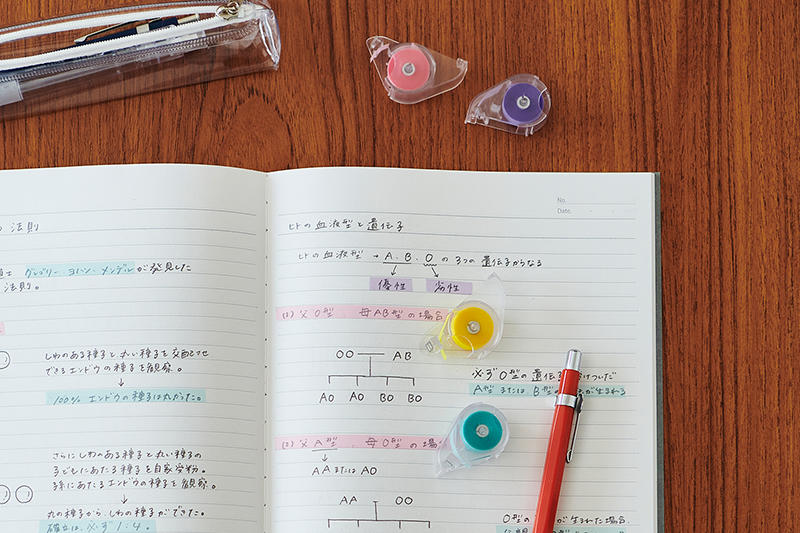 法則
グレゴリー・ヨハン・メンデルが発見した
法則。
しわのある種子と丸い種子を交配させ
できるエンドウの種子を観察。
↓
100% エンドウの種子は丸だった。
さらにしわのある種子と丸い種子の
子どもにあたる種子を自家受粉。
孫にあたるエンドウの種子を観察。
↓
丸の種子から、しわの種子ができた。
確立は、必ず 1:4。
No.
Date.
ヒトの血液型と遺伝子
ヒトの血液型 → A、B、Oの3つの遺伝子からなる
優性 劣性
(1) 父O型 母AB型の場合
OO AB
AO AO BO BO
※必ずO型の遺伝子
A型またはB型 が生まれる
(2) 父A型 母O型の場合
↓
AA または AO
AA OO
O型の が生まれた場合、